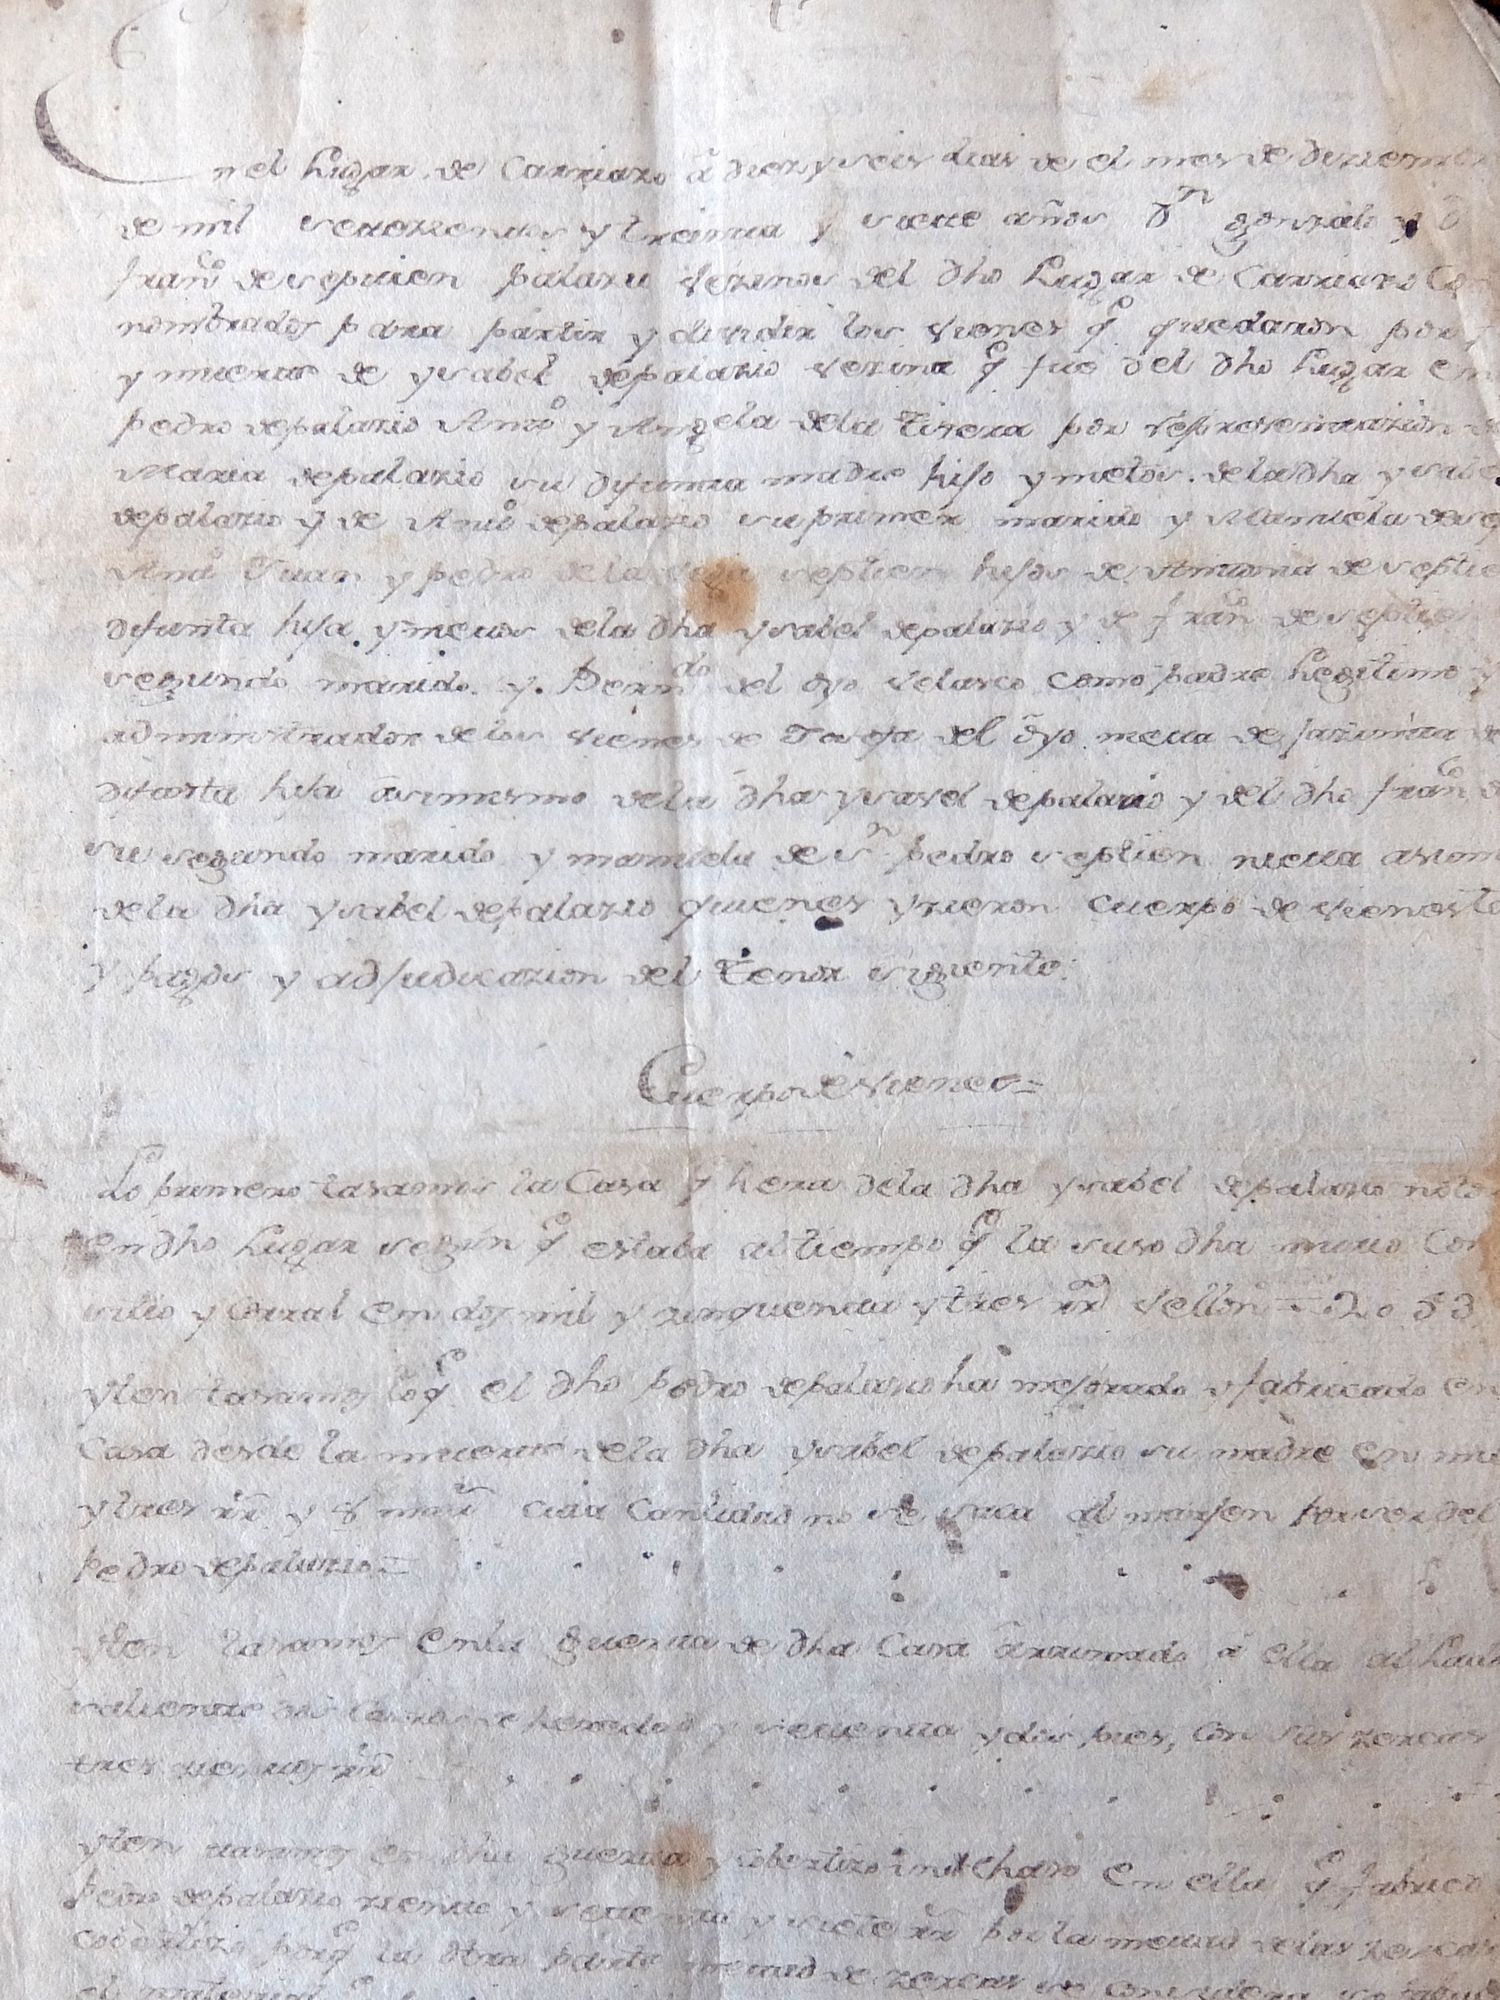 En el Lugar de Carriazo a diez y seis dias de el mes de diziembre
de mil setezientos y treinta y siete años Dn gonzalo y D
franco de septien palazio vezinos del dho Lugar de Carriazo
nombrados para partir y dividir los vienes q quedaron por
y muerte de ysabel de palazio vezina q fue del dho Lugar en
pedro de palazio Anto y Angela de la tixera por representazion de
Maria de palazio su difunta madre hijo y nietos de la dha ysabel
de palazio y de Anto de palazio su primer marido y Manuela de
Ana Juan y pedro de la septien hijos de Antonia de septien
difunta hija y nietos de la dha ysabel de palazio y de franco de septien
segundo marido y Berndo del oyo velasco como padre Legitimo y
administrador de los vienes de Josefa del oyo nieta de
difunta hija asimesmo de la dha ysavel de palazio y del dho franco de
su segundo marido y manuela de Sn pedro septien nieta
de la dha ysabel de palazio quienes yzieron cuerpo de vienes
y pagos y adjudicazion del tenor siguiente
Cuerpo de vienes =
Lo primero tasamos la Casa y hera de la dha ysabel de palazio
en dho Lugar segun q estaba al tiempo q la suso dha murio Con
sitio y Corral en dos mil y zinquenta y tres rr vellon = 2053
yten tasamos lo q el dho pedro de palazio ha mejorado y fabricado en
Casa desde la muerte de la dha ysabel de palazio su madre en
y tres rr y 8 mrs cuia Cantidad no se saca al marjen por ser del
pedro de palazio =
yten tasamos en la guerta de dha Casa arrimado a ella al Lado
saliente dos Carros de heredad y setenta y dos pies, con sus zercas
trezientos rr
yten tasamos en dha guerta y cobertizo en ella q fabrico
pedro de palazio ziento y setenta y siete rr por la mitad de las zercas
cobertizo porq la otra parte mitad de zercas se considera
el material